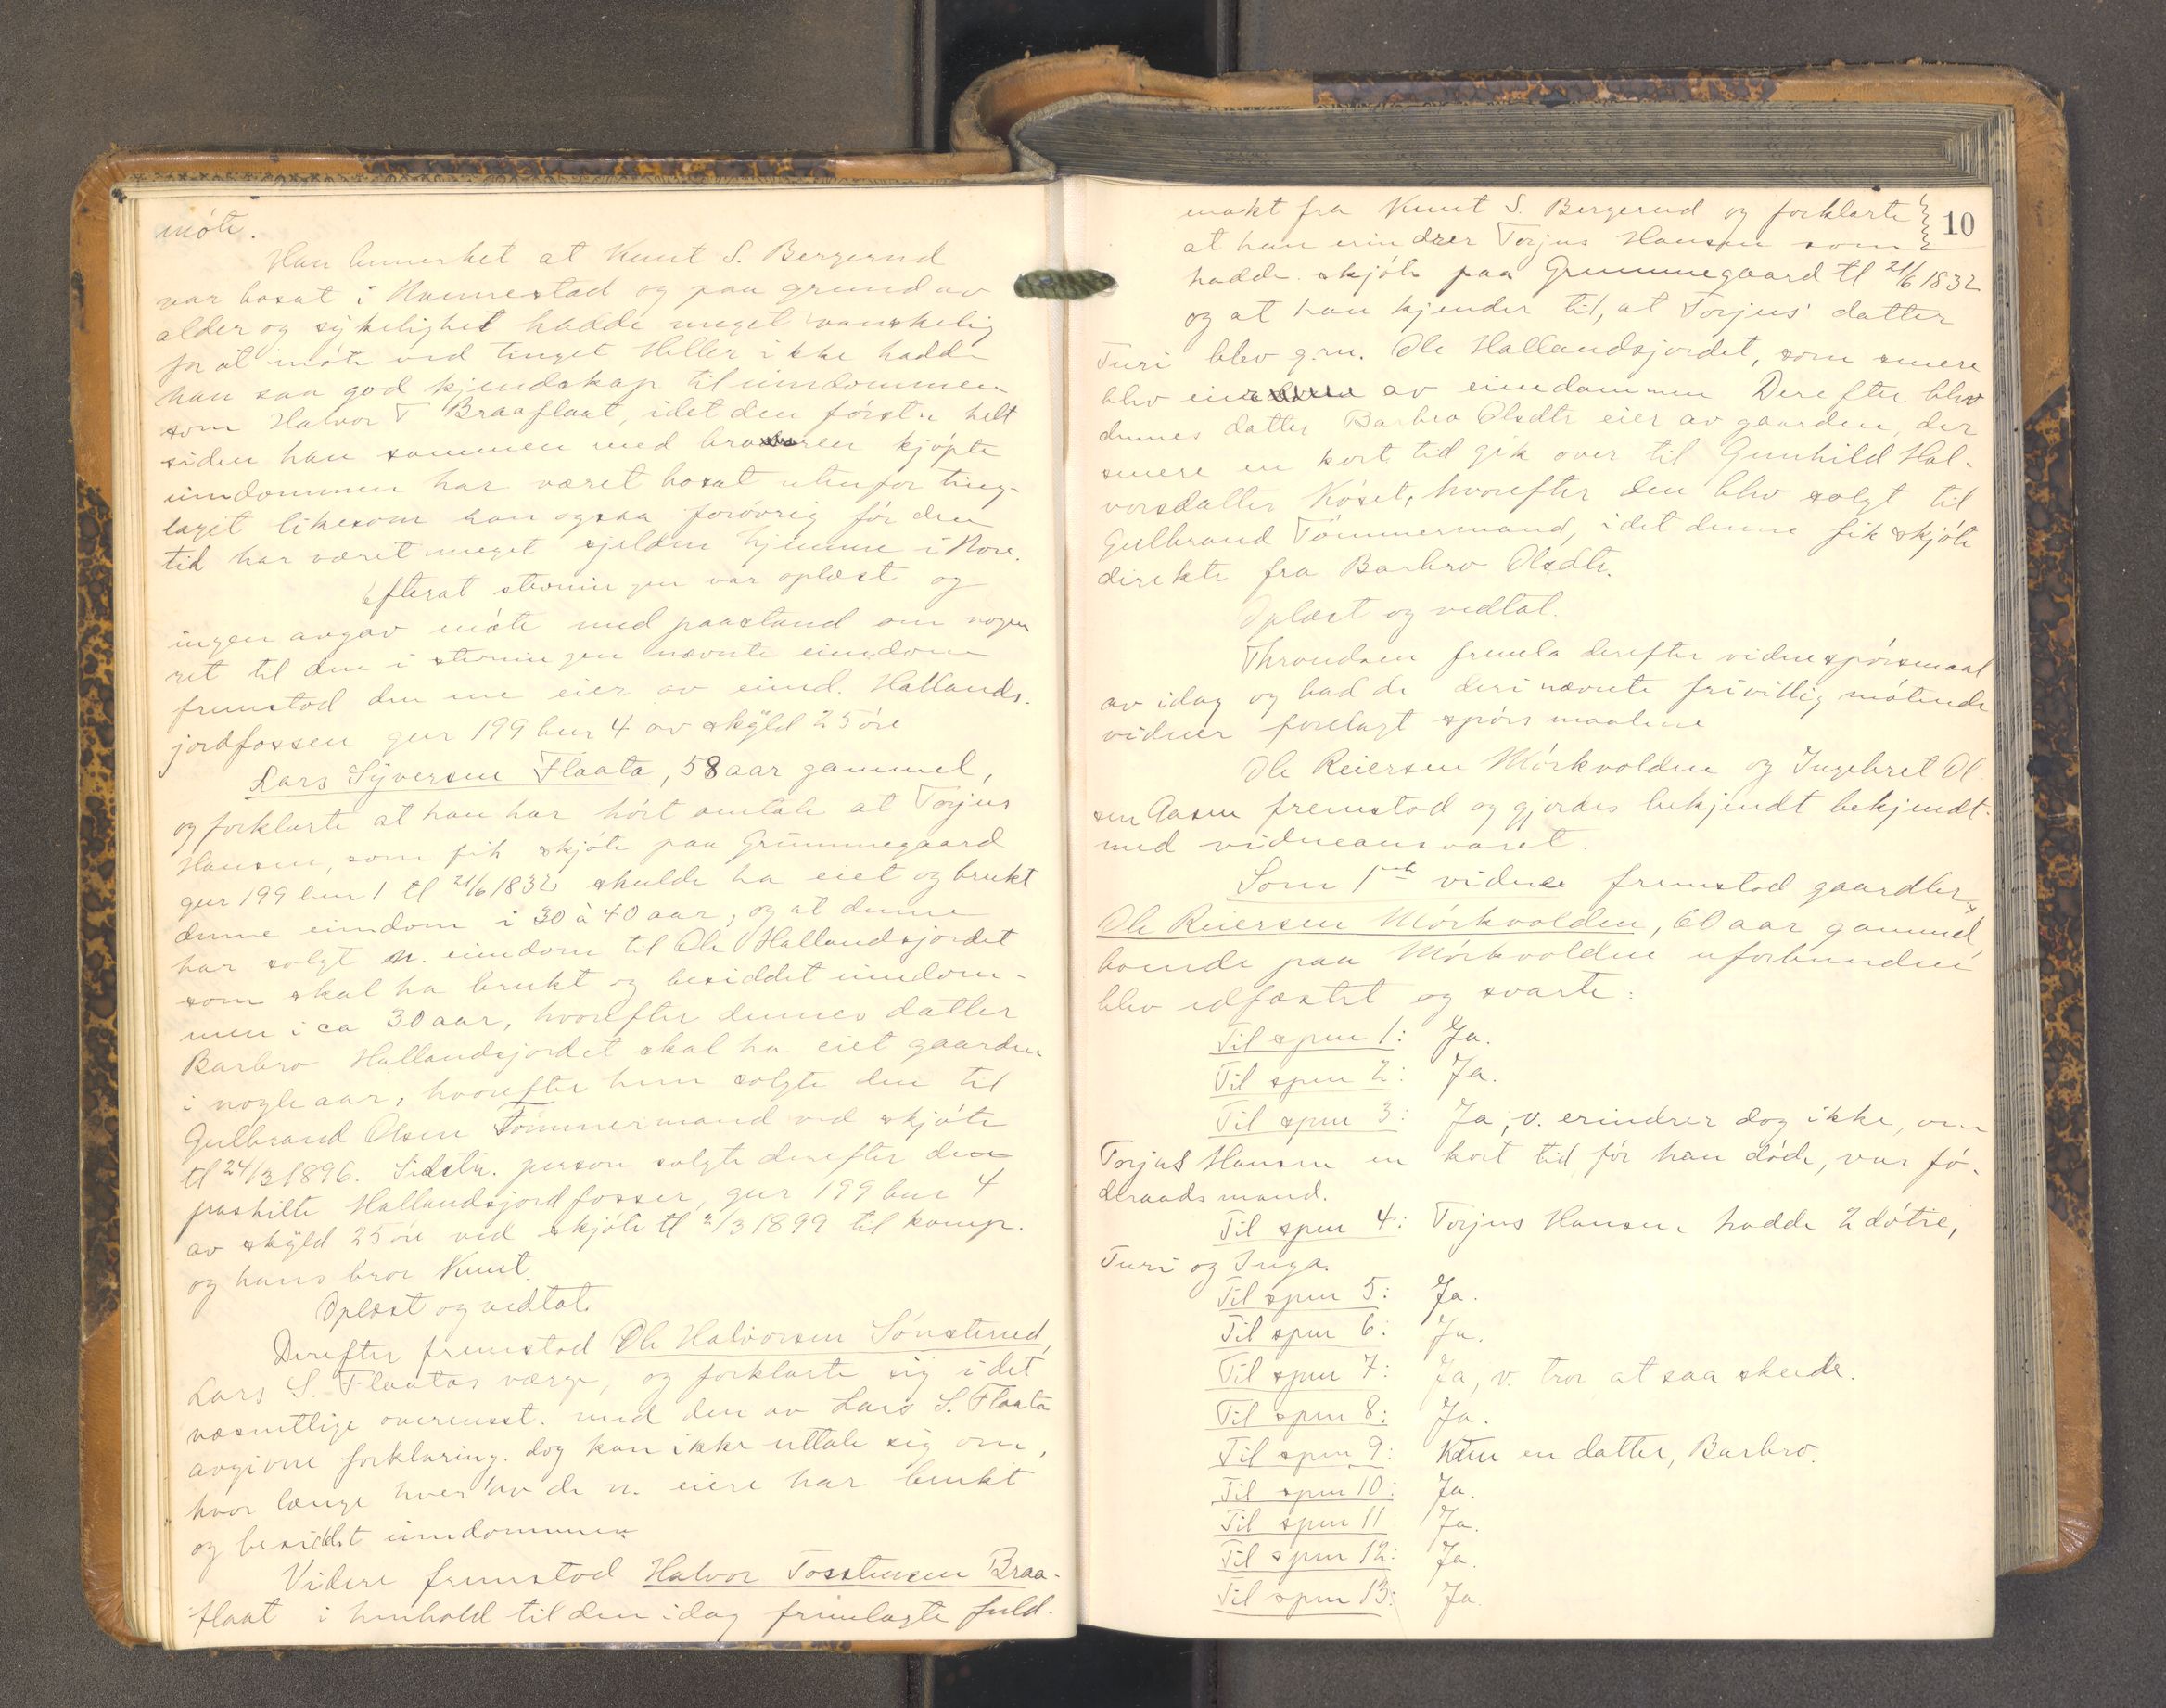 möte.
Han bemerket at Knut S. Bergerud
var bosat i Numestad og paa grund av
alder og sykelighet hadde meget vanskelig
for at möte ved tinget Heller ikke hadde
han saa god kjendskap til eiendommen
som Halvor T Braaflaat, idet den förstn. helt
siden han sammen med broren kjöpte
eiendommen har været bosat utenfor ting-
laget likesom han ogsaa forövrig för den
tid har været meget sjelden hjemme i Nore.
Efterat stevningen var oplæst og
ingen avgav möte med paastand om nogen
ret til den i stevningen nævnte eiendom
fremstod den ene eier av eiend. Hallands-
jordfossen gnr 199 bnr 4 av skyld 25 öre
Lars Syversen Flaata, 58 aar gammel,
og forklarte at han har hört omtale at Torjus
Hansen, som fik skjöte paa Grummegaard
gnr 199 bnr 1 tl 21/6 1832 skulde ha eiet og brukt
denne eiendom i 30 à 40 aar, og at denne
har solgt n. eiendom til Ole Hallandsjordet
som skal ha brukt og besiddet eiendom-
men i ca 30 aar, hvorefter dennes datter
Barbro Hallandsjordet skal ha eiet gaarden
i nogle aar, hvorefter hun solgte den til
Gulbrand Olsen Tömmermand ved skjöte
tl 24/3 1896. Sidstn. person solgte derefter den
paskilte Hallandsjordfosser, gnr 199 bnr 4
av skyld 25 öre ved skjöte tl 2/3 1899 til komp.
og hans bror Knut.
Oplæst og vedtat.
Derefter fremstod Ole Halvorsen Sönsterud,
Lars S. Flaatas værge, og forklarte sig i det
væsentlige overensst. med den av Lars S. Flaata
avgivne forklaring. dog kan ikke uttale sig om,
hvor længe hver av de n. eiere har brukt
og besiddet eiendommen
Videre fremstod Halvor Tosstensen Braa-
flaat i henhold til den idag fremlagte fuld-
10
makt fra Knut S. Bergerud og forklarte
at han erindrer Torjus Hansen som
hadde skjöte paa Grummegaard tl 21/6 1832
og at han kjender til, at Torjus' datter
Turi blev g.m. Ole Hallandsjordet, som senere
blev eier av eiendommen Derefter blev
dennes datter Barbro Olsdtr eier av gaarden, der
senere en kort tid gik over til Gunhild Hal-
vorsdatter Köset, hvorefter den blev solgt til
Gulbrand Tömmermand, idet denne fik skjöte
direkte fra Barbro Olsdtr.
Oplæst og vedtat.
Throndsen fremla derefter vidnespörsmaal
av idag og bad de deri nævnte frivillig mötende
vidner forelagt spörsmaalene
Ole Reiersen Mörkvolden og Ingebret Ol-
sen Aasen fremstod og gjordes bekjendt bekjendt-
med vidneansvaret.
Som 1ste vidne fremstod gaardbr.
Ole Reiersen Mörkvolden, 60 aar gammel,
boende paa Mörkvolden uforbunden
blev edfæstet og svarte:
Til spm 1: Ja.
Til spm 2: Ja.
Til spm 3: Ja, v. erindrer dog ikke, om
Torjus Hansen en kort tid för han döde, var fö-
deraadsmand.
Til spm 4: Torjus Hansen hadde 2 dötre,
Turi og Inga.
Til spm 5: Ja.
Til spm 6: Ja.
Til spm 7: Ja, v. tror at saa skede.
Til spm 8: Ja.
Til spm 9: Kun en datter, Barbro.
Til spm 10: Ja.
Til spm 11 Ja.
Til spm 12: Ja.
Til spm 13: Ja.